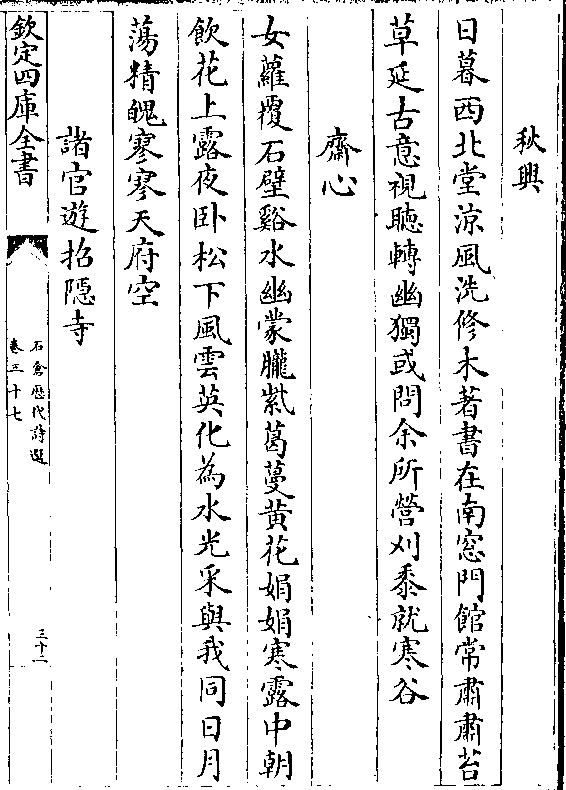 秋興
日暮西北堂涼風洗修木著書在南窓門館常肅肅苔
草延古意視聽轉幽獨或問余所營刈黍就寒谷
齋心
女蘿覆石壁谿水幽蒙朧紫葛蔓黄花娟娟寒露中朝
飲花上露夜卧松下風雲英化為水光采與我同日月
蕩精魄寥寥天府空
諸官遊招隠寺
欽定四庫全書
石倉歴代詩選
卷三十七
三十二